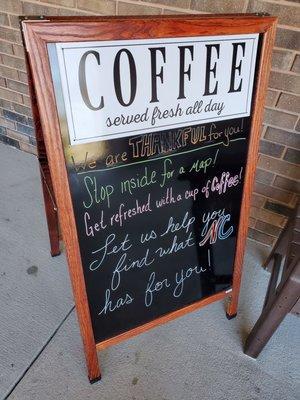 COFFEE
served fresh all day
We are THANKFUL for you!
Stop inside for a map!
Get refreshed with a cup of Coffee.
Let us help you
find what NC
has for you!